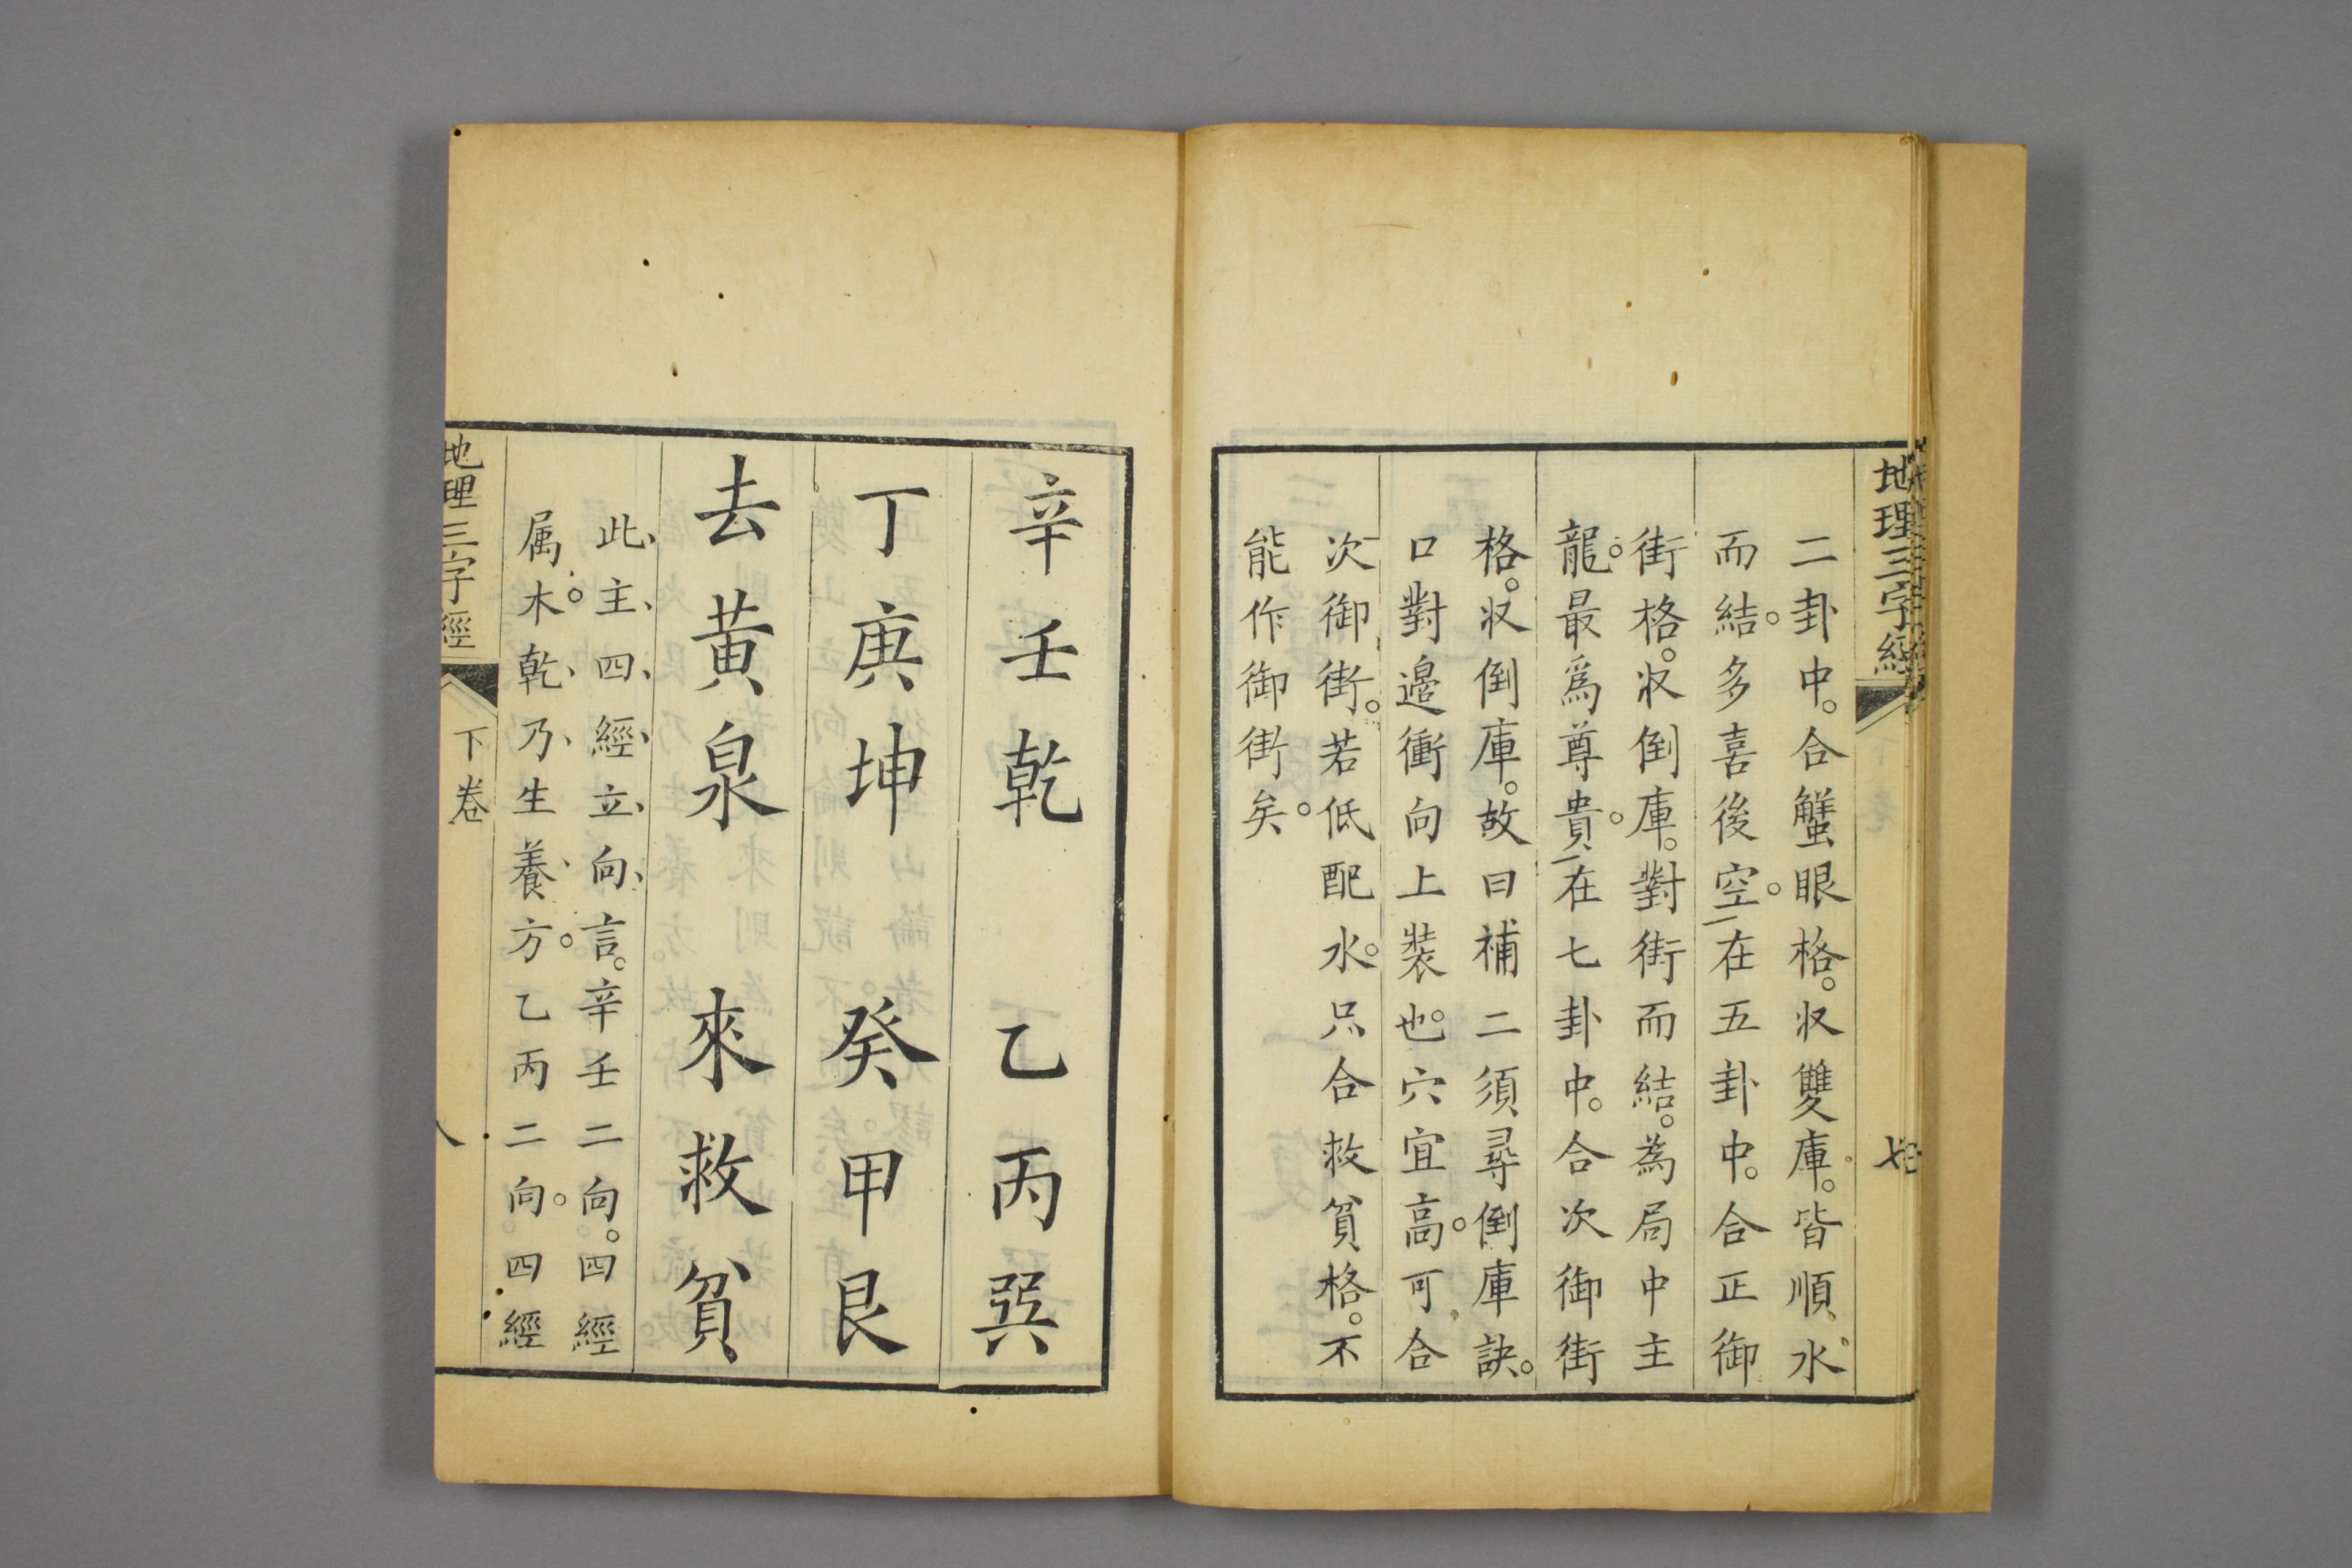 地理三字經
七
二卦中。合蟹眼格。収雙庫。皆順水
而結。多喜後空。一在五卦中。合正御
街格。収倒庫。對街而結。為局中主
龍。最爲尊貴。一在七卦中。合次御街
格。収倒庫。故曰補二須尋倒庫訣。
口對邉衝向上裝也。穴宜高。可合
次御街。若低配水。只合救貧格。不
能作御街矣。
辛壬乾 乙丙巽
丁庚坤 癸甲艮
去黄泉 來救貧
此、主、四、經、立、向、言。辛壬二向。四經
属木。乾、乃、生養、方。乙丙二向。四經
地理三字經
下卷
八